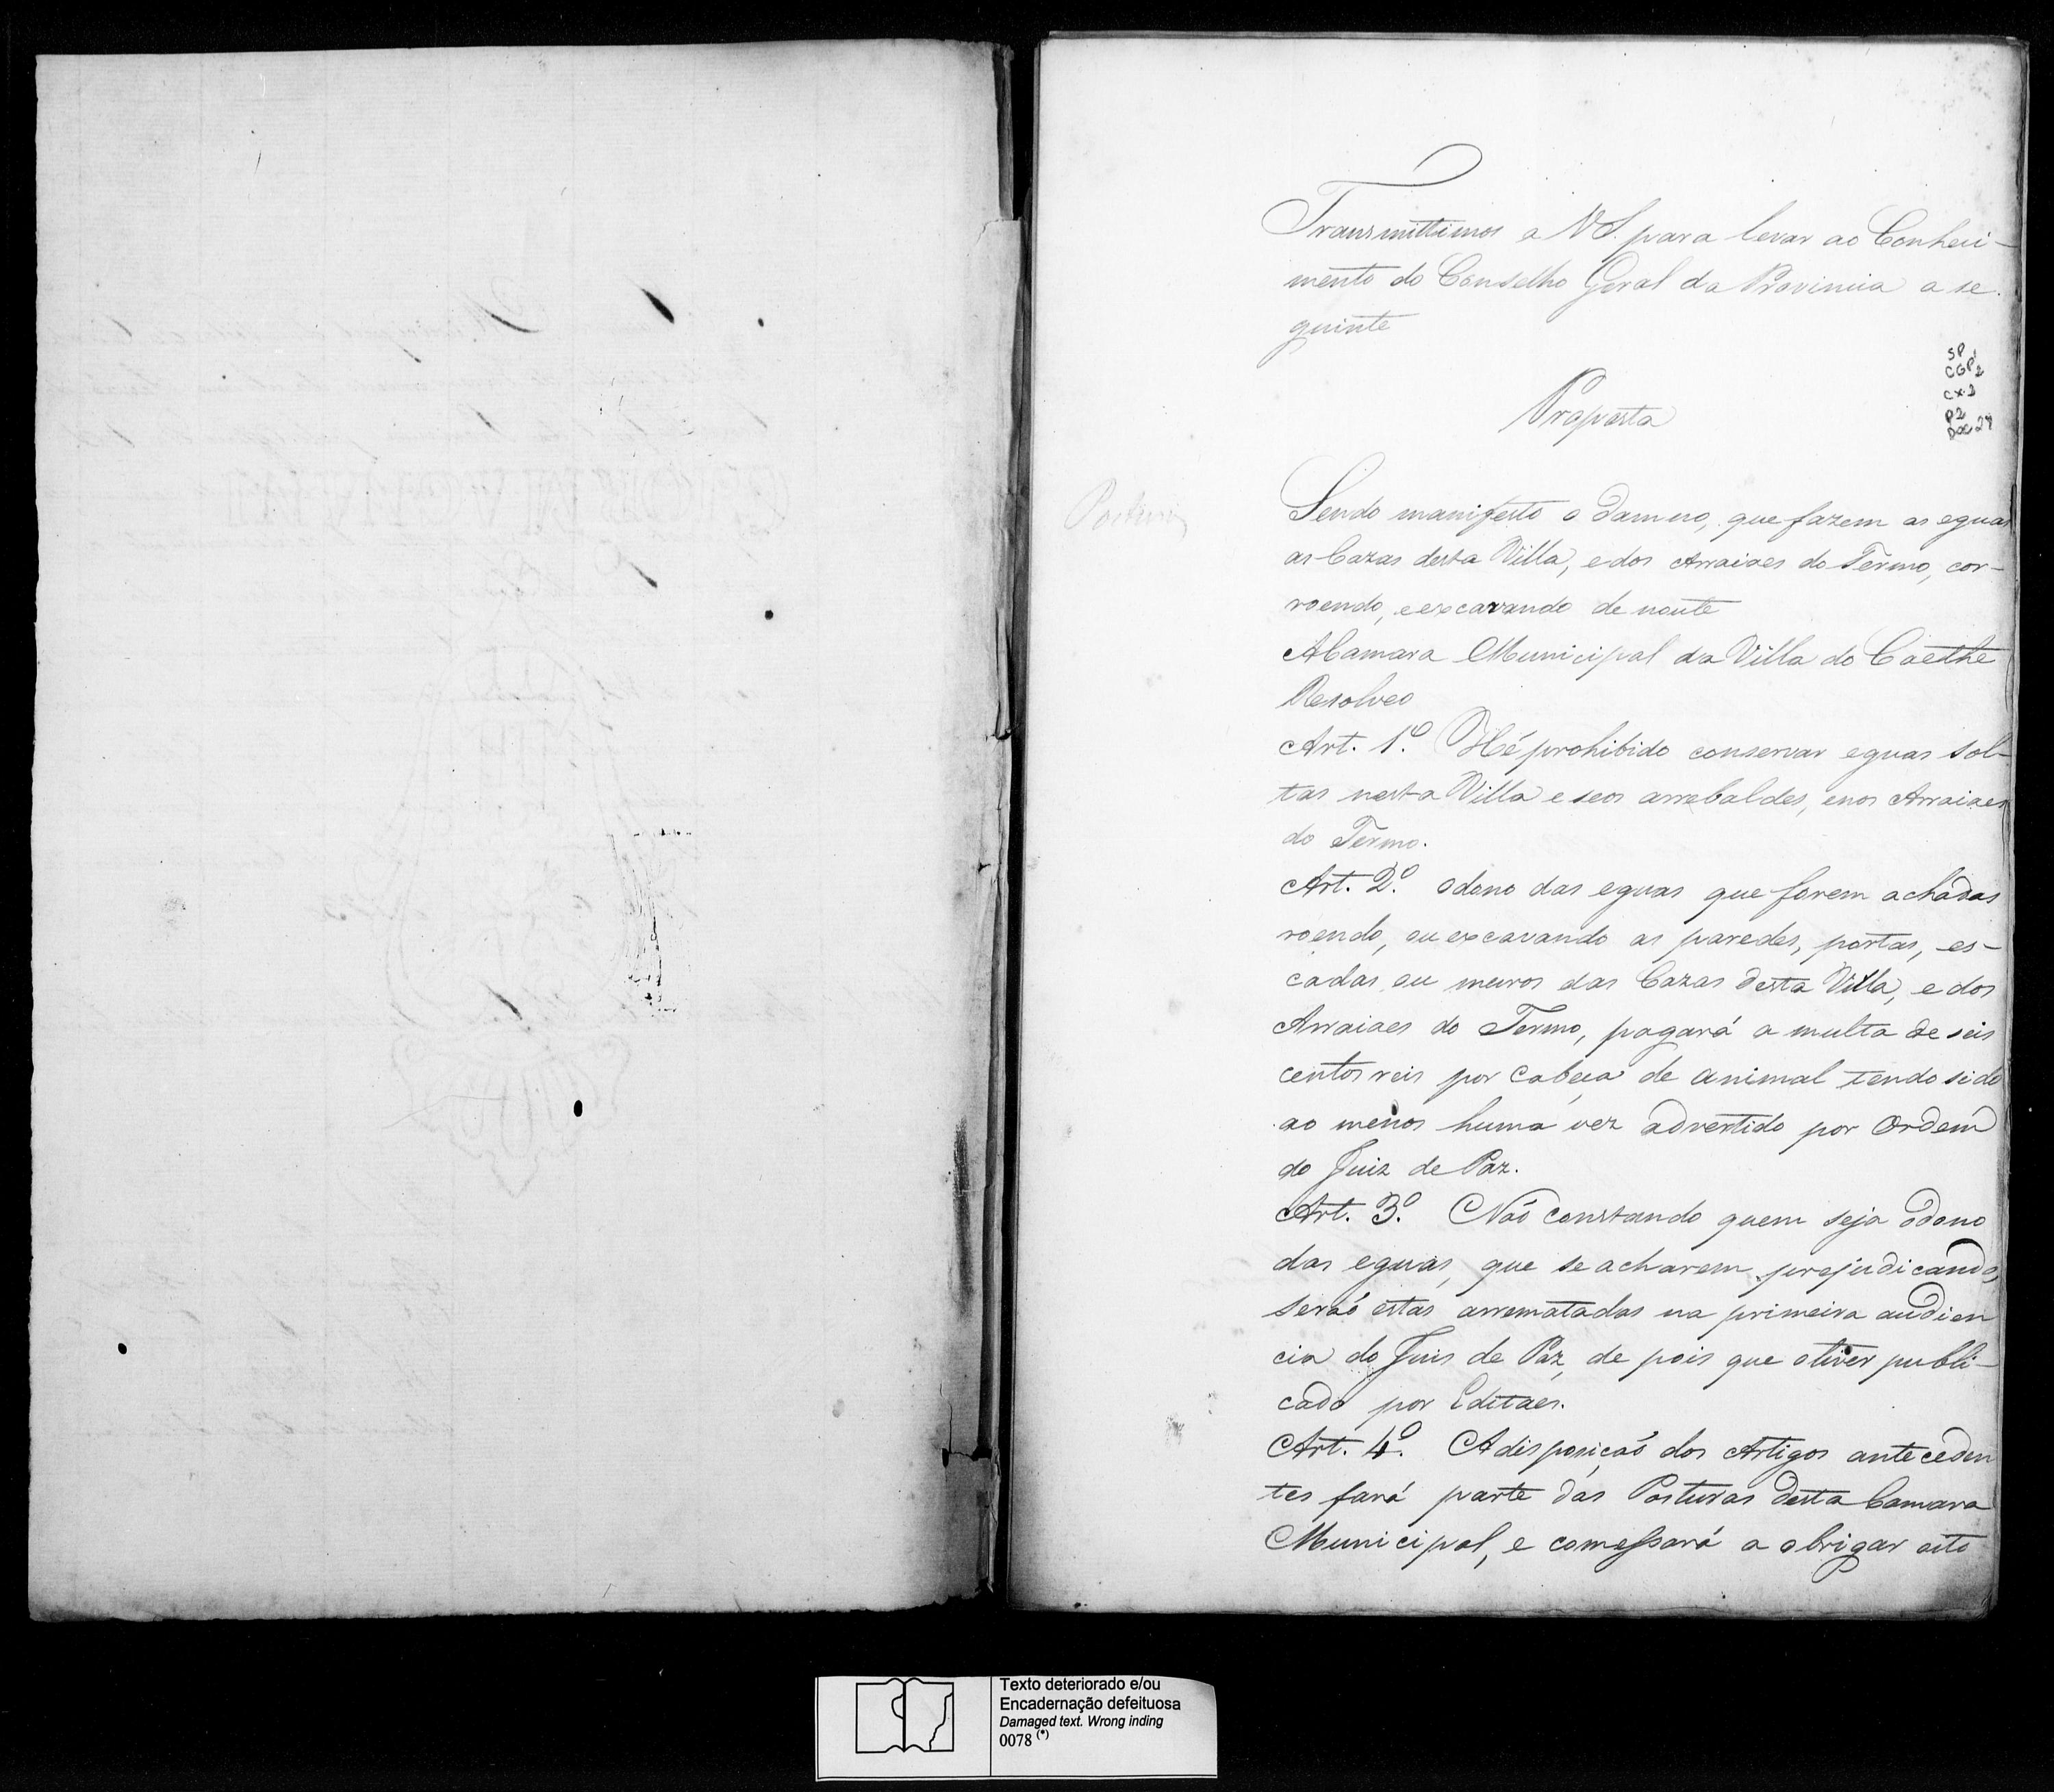 Transmittimos a VS. para levar ao Conheci-
mento do Conselho Geral da Provincia a se-
guinte
SP
CGP1
CX.2
P2
Doc 28
Proposta
Posturas
Sendo manifesto o damno, que fazem as eguas
as Cazas desta Villa, e dos Arraiaes do Termo, cor-
roendo, e excavando de noute
A Camara Municipal da Villa do Caethé
Resolveo
Art. 1º. Hé prohibido conservar eguas sol-
tas nesta Villa e seos arrebaldes, e nos Arraiaes
do Termo.
Art. 2º. o dono das eguas que forem achadas
roendo, ou excavando as paredes, portas, es-
cadas ou muros das Cazas desta Villa, e dos
Arraiaes do Termo, pagará a multa de seis
centos reis por cabeça de animal tendo sido
ao menos huma vez advertido por Ordem
do Juiz de Paz.
Art. 3º. Naõ constando quem seja o dono
das eguas, que se acharem prejudicando,
seraõ estas arrematadas na primeira audien
cia do Juis de Paz, de pois que o tiver publi-
cado por Editaes.
Art. 4º. A disposiçaõ dos Artigos anteceden
tes fará parte das Posturas desta Camara
Municipal, e comessará a obrigar oito
Texto deteriorado e/ou
Encadernação defeituosa
Damaged text. Wrong inding
0078 (*)